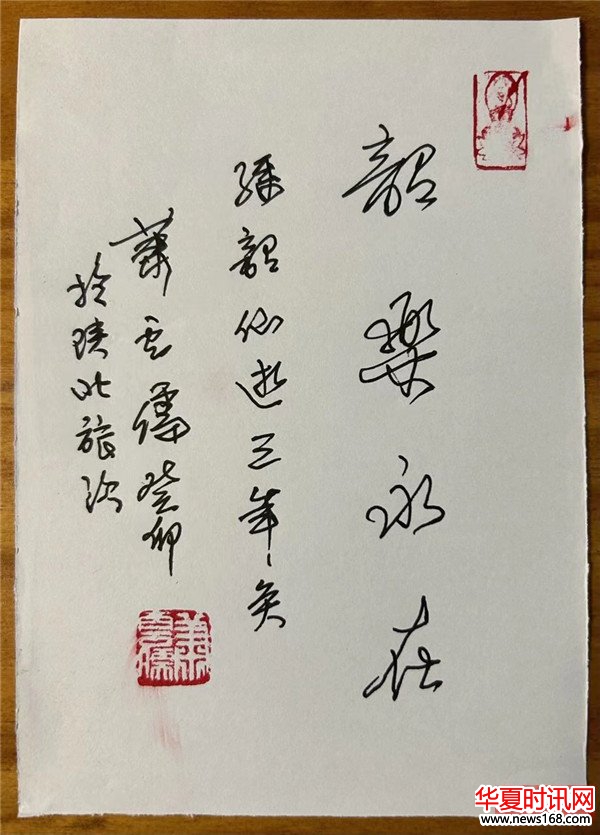 韶樂永在
孫韶仙逝三年矣
蕭云儒癸卯
於陝北旅次
华夏时讯网
www.news168.com